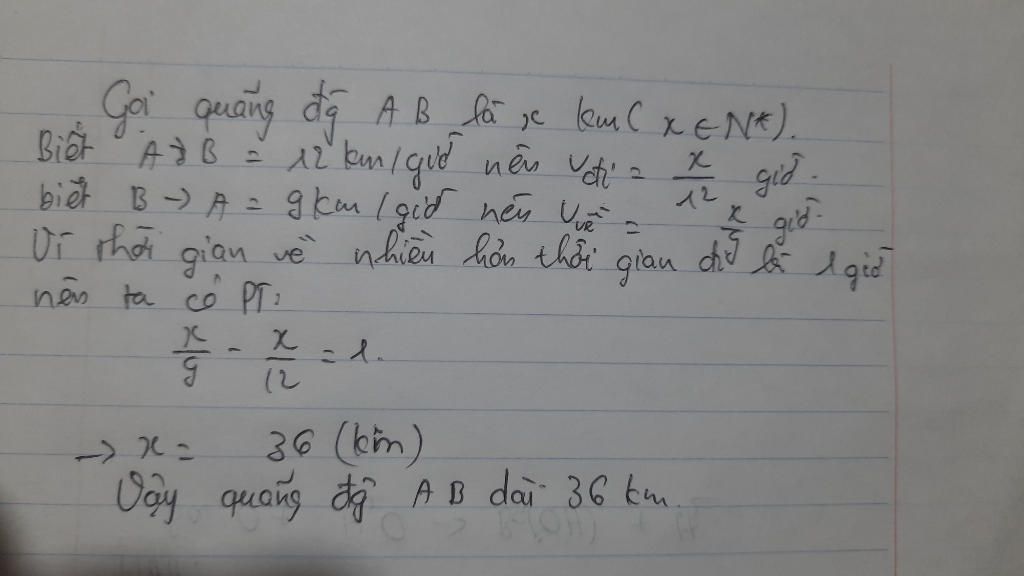 Gọi quãng đg AB là x km ( x ∈ N*).
Biết A → B = 12 km/giờ nên Vđi = x/12 giờ.
biết B → A = 9 km/giờ nên Vvề = x/9 giờ.
Vì thời gian về nhiều hơn thời gian đi là 1 giờ
nên ta có PT:
x/9 - x/12 = 1.
→ x = 36 (km)
Vậy quãng đg AB dài 36 km.